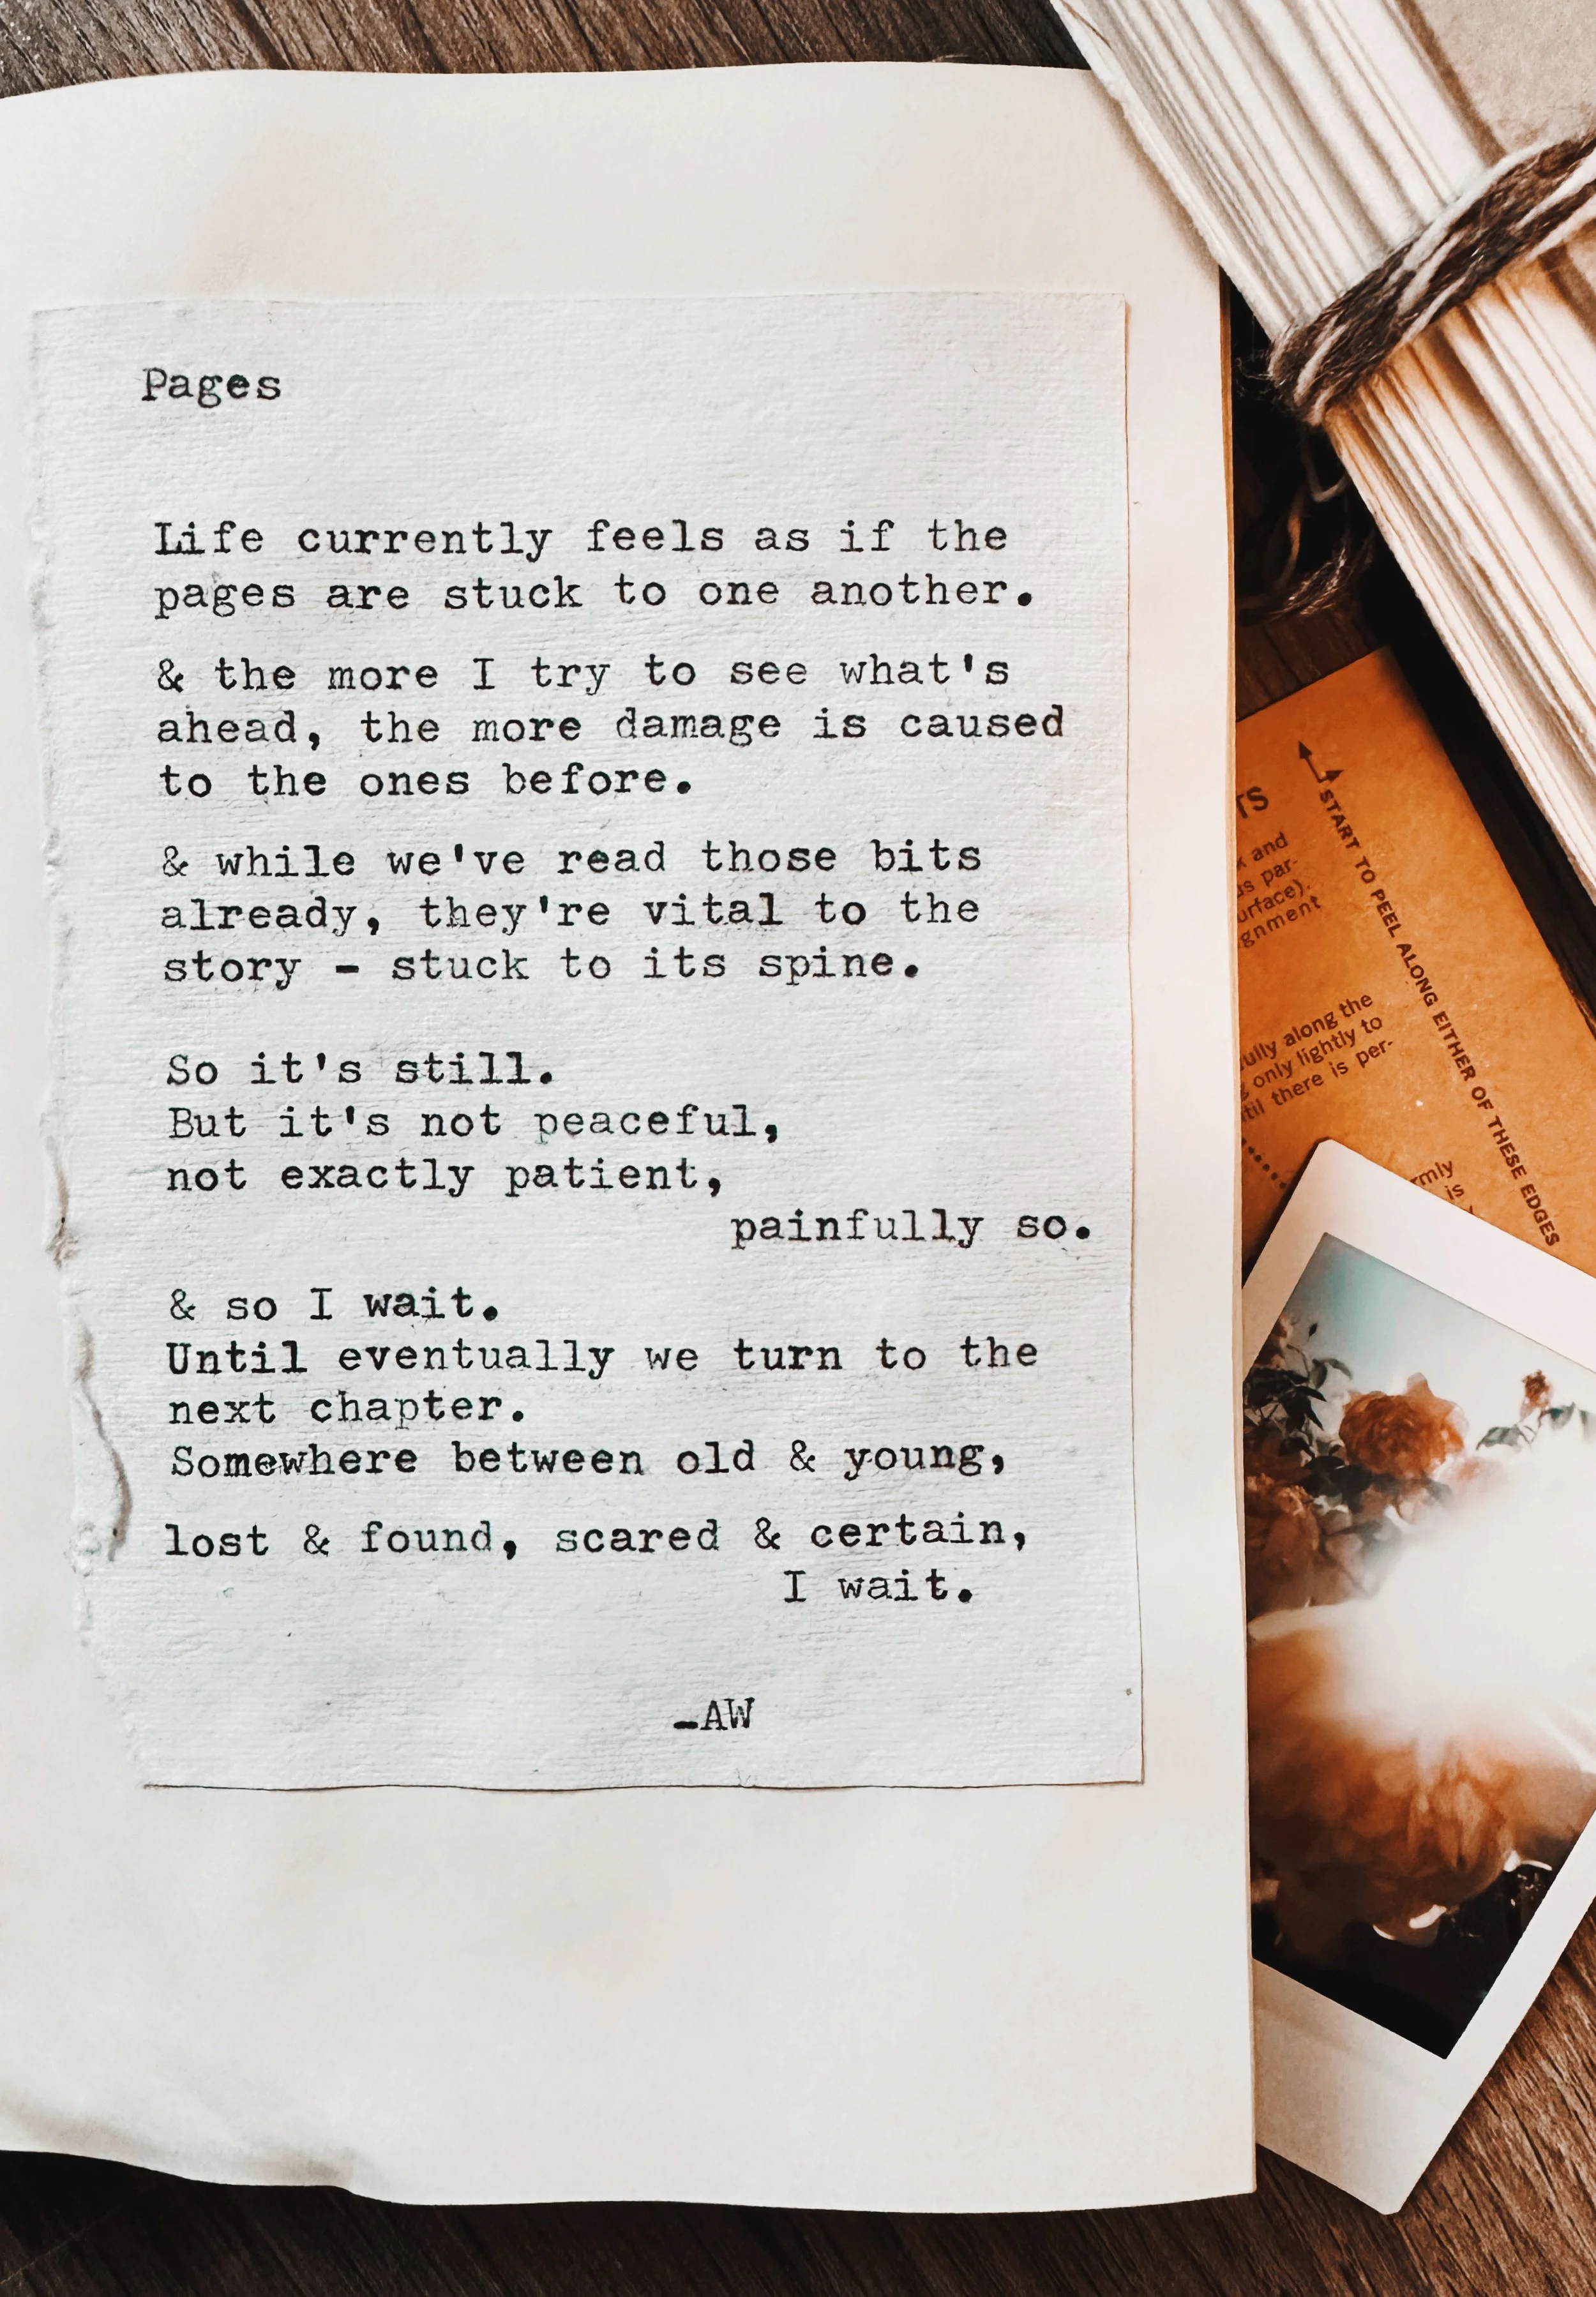 Pages
Life currently feels as if the
pages are stuck to one another.
& the more I try to see what's
ahead, the more damage is caused
to the ones before.
& while we've read those bits
already, they're vital to the
story - stuck to its spine.
So it's still.
But it's not peaceful,
not exactly patient,
painfully so.
& so I wait.
Until eventually we turn to the
next chapter.
Somewhere between old & young,
lost & found, scared & certain,
I wait.
-AW
START TO PEEL ALONG EITHER OF THESE EDGES
and
along the
only lightly to
there is per-
is